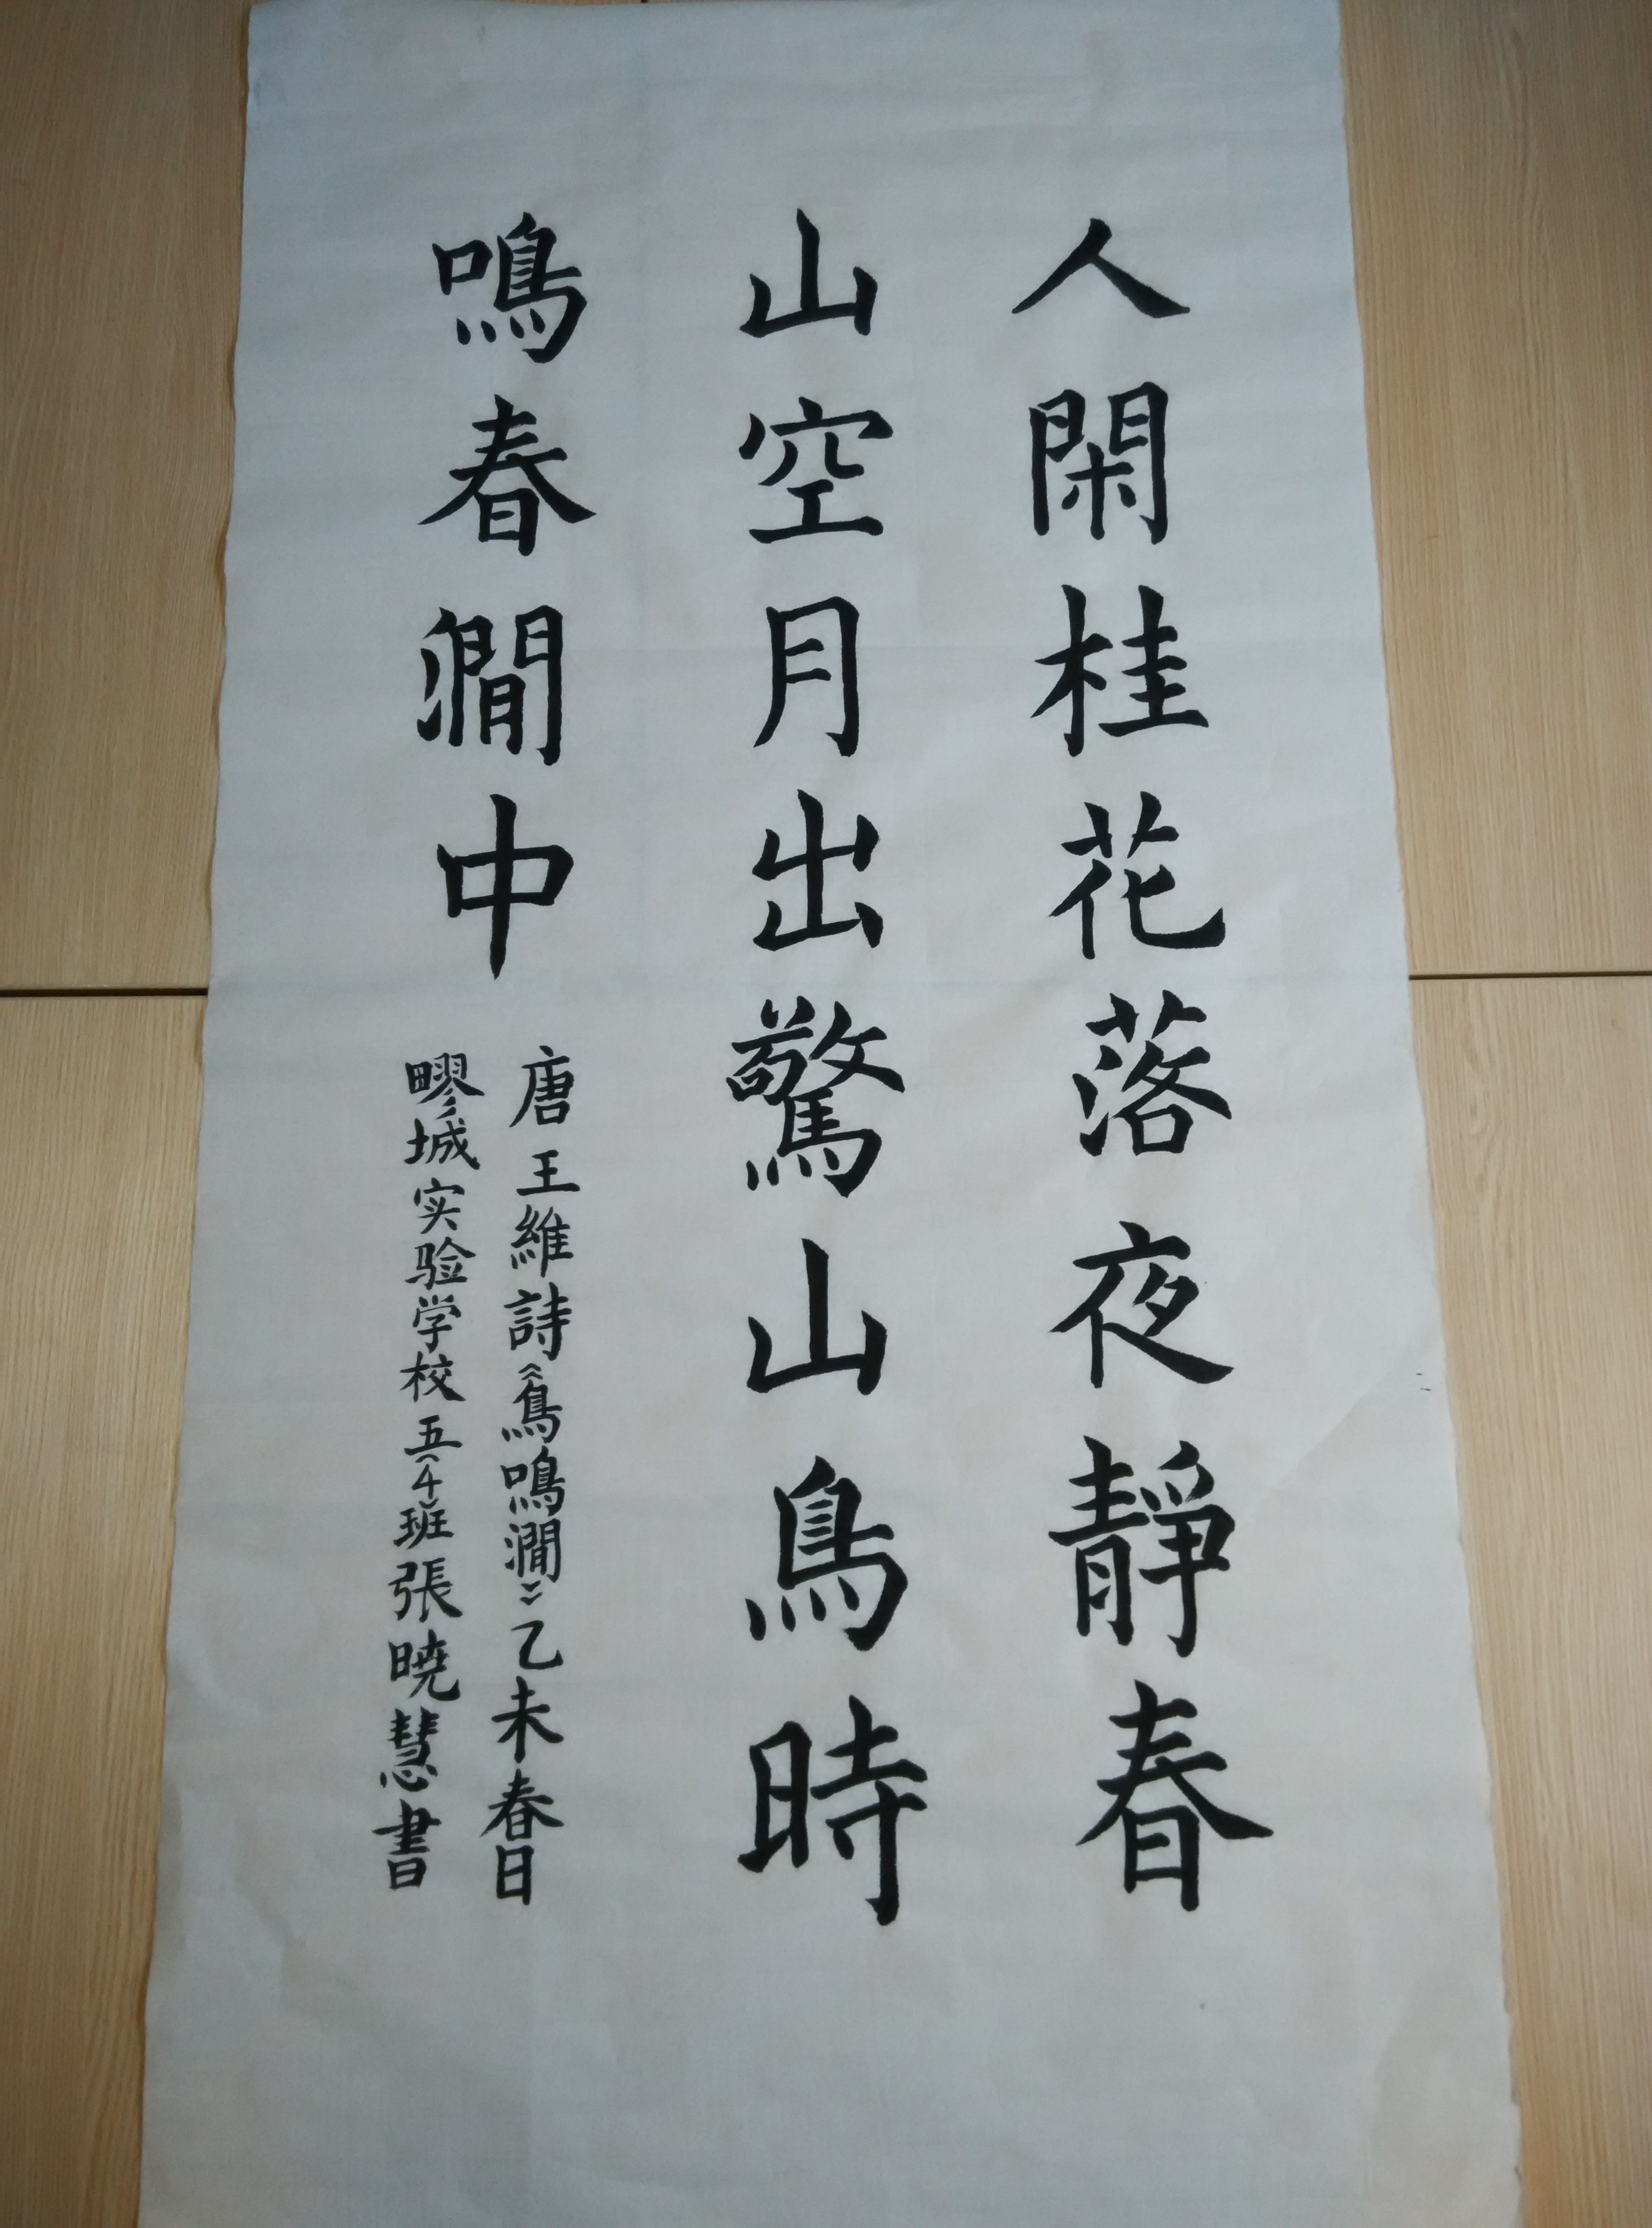 人閑桂花落夜靜春
山空月出驚山鳥時
鳴春澗中
唐王維詩《鳥鳴澗》乙未春日
疁城实验学校五(4)班張曉慧書